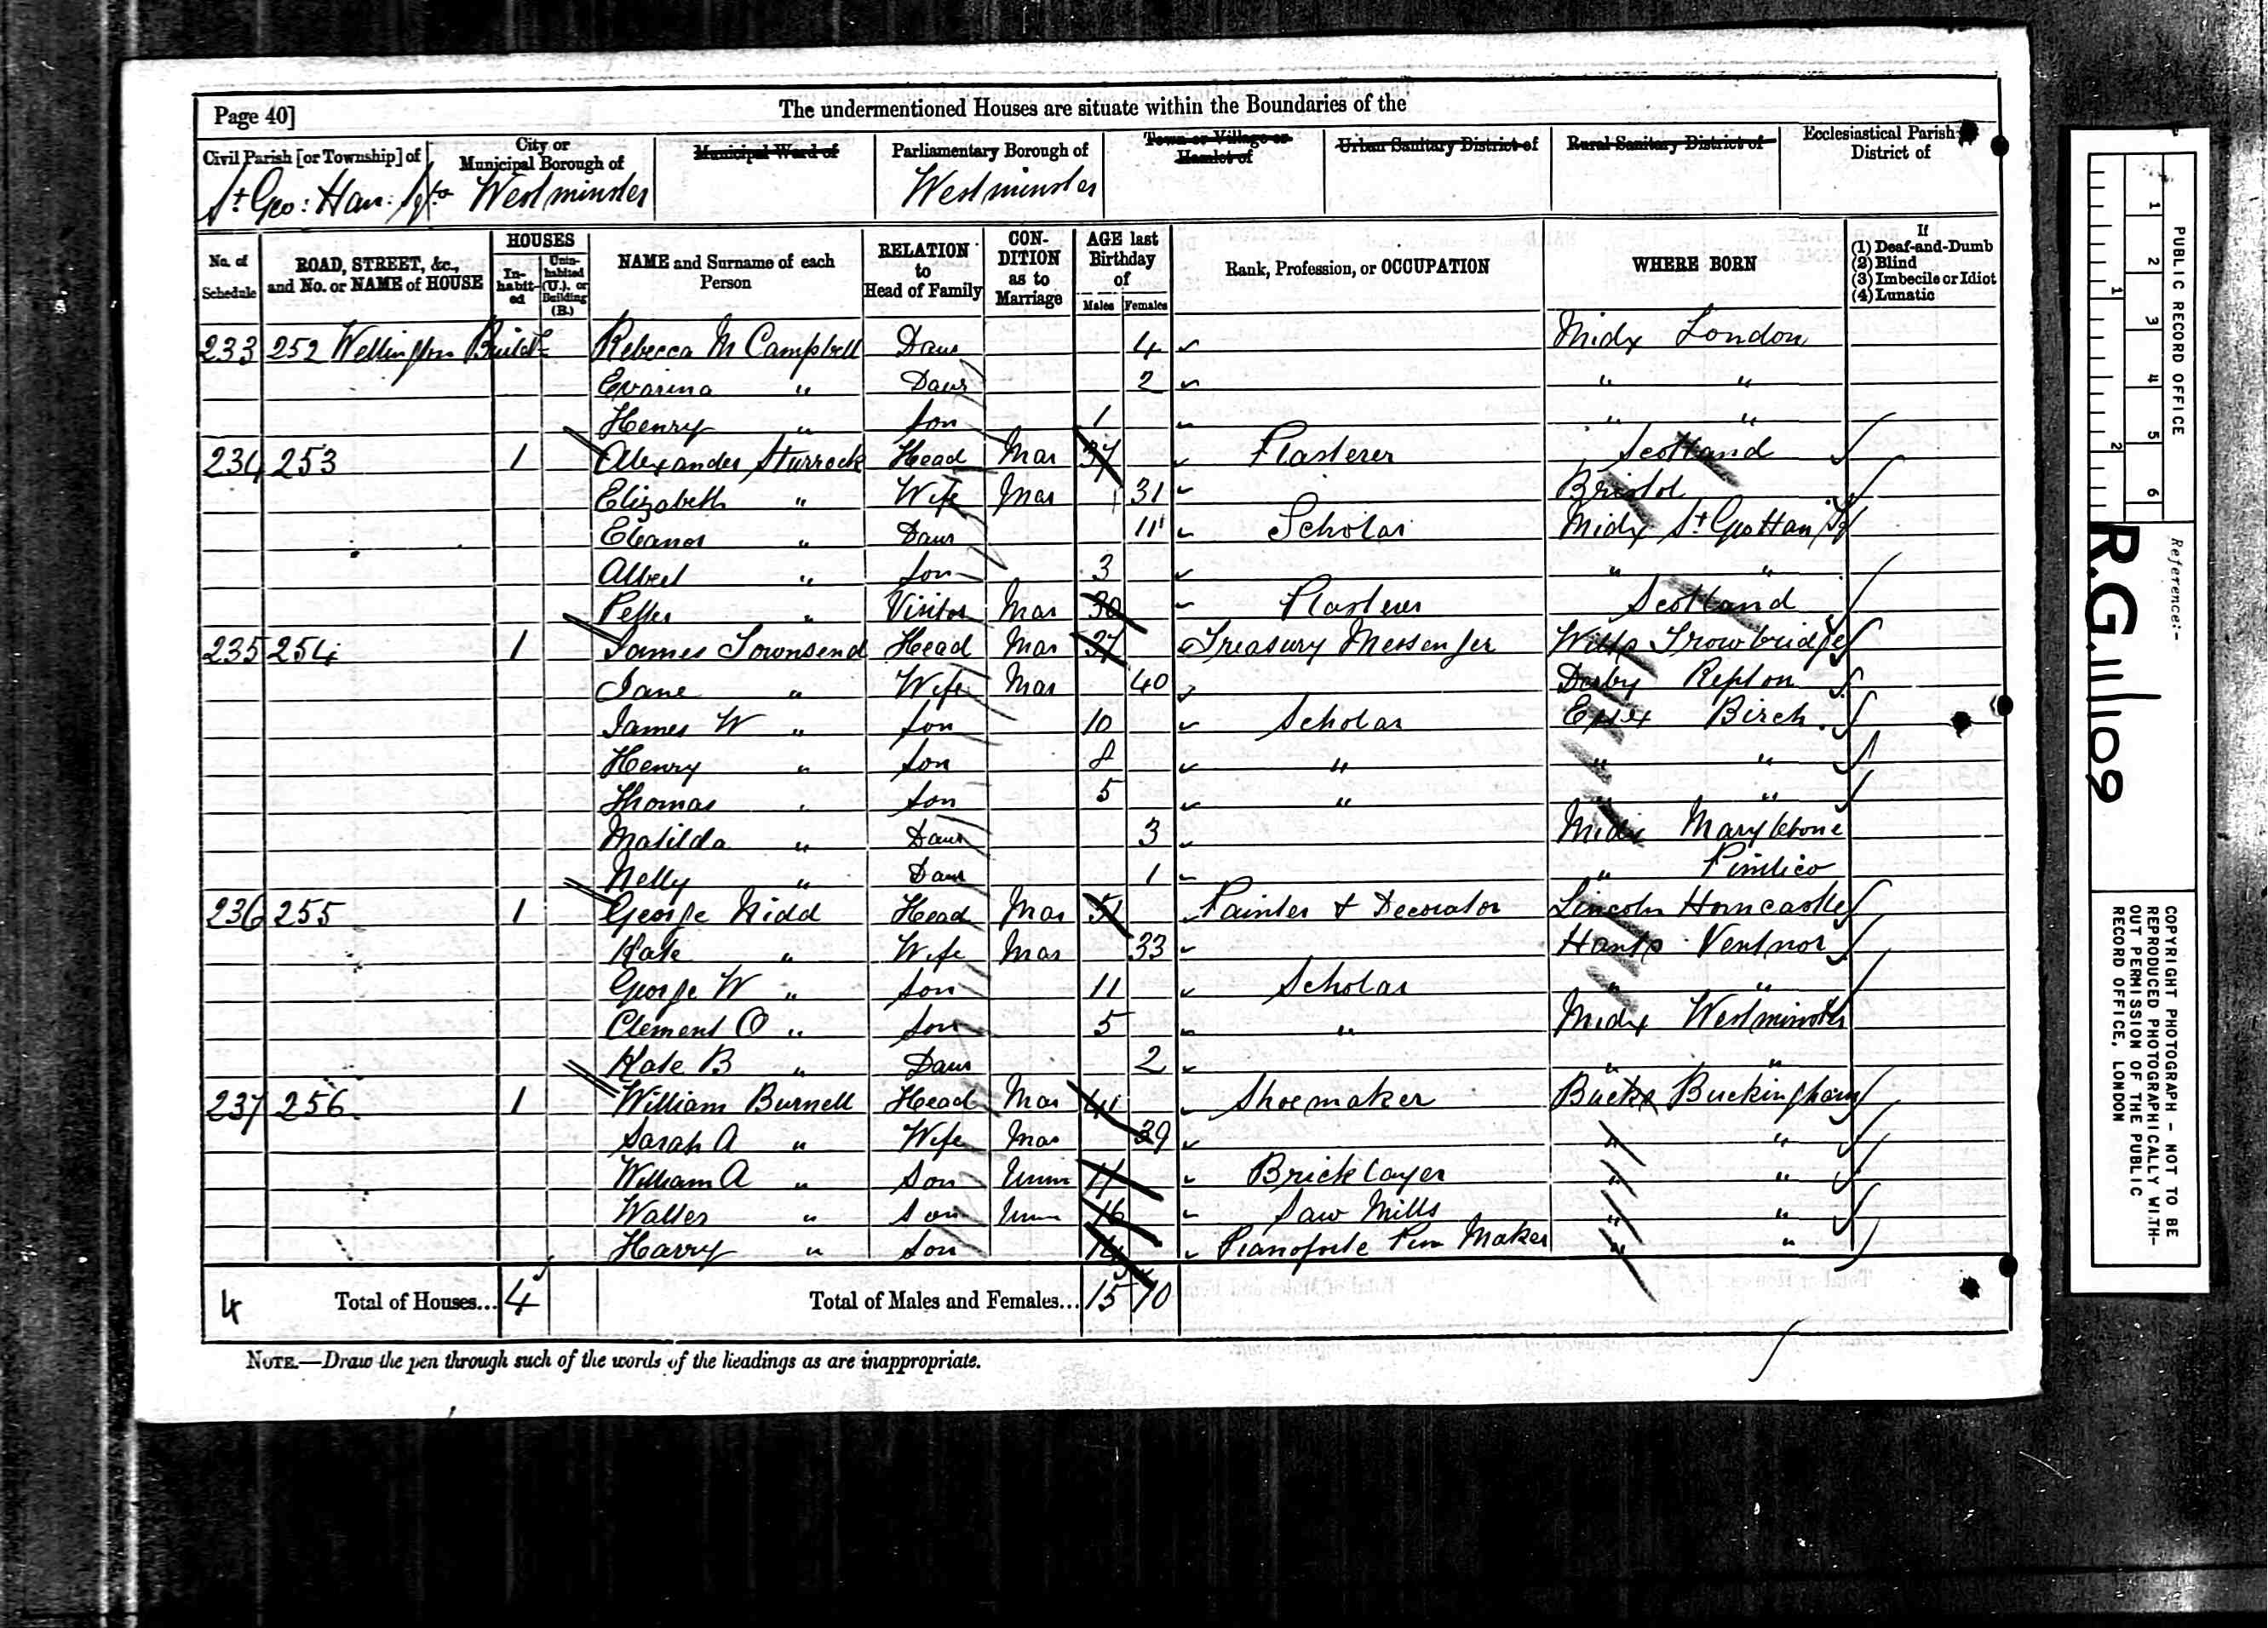 Page 40]
The undermentioned Houses are situate within the Boundaries of the
Civil Parish [or Township] of
City or Municipal Borough of
Municipal Ward of
Parliamentary Borough of
Town or Village or Hamlet of
Urban Sanitary District of
Rural Sanitary District of
Ecclesiastical Parish or District of
St Geo: Han: Sqre Westminster Westminster
No. of Schedule
ROAD, STREET, &c., and No. or NAME of HOUSE
HOUSES
In-habit-ed
Unin-habited (U.), or Building (B.)
NAME and Surname of each Person
RELATION to Head of Family
CON-DITION as to Marriage
AGE last Birthday of
Males Females
Rank, Profession, or OCCUPATION
WHERE BORN
If
(1) Deaf-and-Dumb
(2) Blind
(3) Imbecile or Idiot
(4) Lunatic
233 252 Wellington Buildgs Rebecca M Campbell Daur 4 Midx London
Evarina " Daur 2 " "
Henry " Son 1 " "
234 253 1 Alexander Sturrock Head Mar 37 Plasterer Scotland
Elizabeth " Wife Mar 31 Bristol
Eleanor " Daur 11 Scholar Midx St Geo Han Sq
Albert " Son 3 " "
Peter " Visitor Mar 30 Plasterer Scotland
235 254 1 James Townsend Head Mar 37 Treasury Messenger Wilts Trowbridge
Jane " Wife Mar 40 Derby Repton
James W " Son 10 Scholar Essex Birch
Henry " Son 8 " " "
Thomas " Son 5 " " "
Matilda " Daur 3 Midx Marylebone
Nelly " Daur 1 " Pimlico
236 255 1 George Kidd Head Mar 51 Painter & Decorator Lincoln Horncastle
Kate " Wife Mar 33 Hants Ventnor
George W " Son 11 Scholar " "
Clement O " Son 5 " Midx Westminster
Kate B " Daur 2 " "
237 256 1 William Burnell Head Mar 41 Shoemaker Bucks Buckingham
Sarah A " Wife Mar 39 " "
William A " Son Unm 17 Bricklayer " "
Walter " Son Unm 16 Saw Mills " "
Harry " Son 14 Pianoforte Pin Maker " "
4 Total of Houses... 4 Total of Males and Females... 15 10
NOTE.—Draw the pen through such of the words of the headings as are inappropriate.
PUBLIC RECORD OFFICE
1 2 3 4 5 6
1 2
Reference:-
R.G. 11/109
COPYRIGHT PHOTOGRAPH - NOT TO BE
REPRODUCED PHOTOGRAPHICALLY WITH-
OUT PERMISSION OF THE PUBLIC
RECORD OFFICE, LONDON